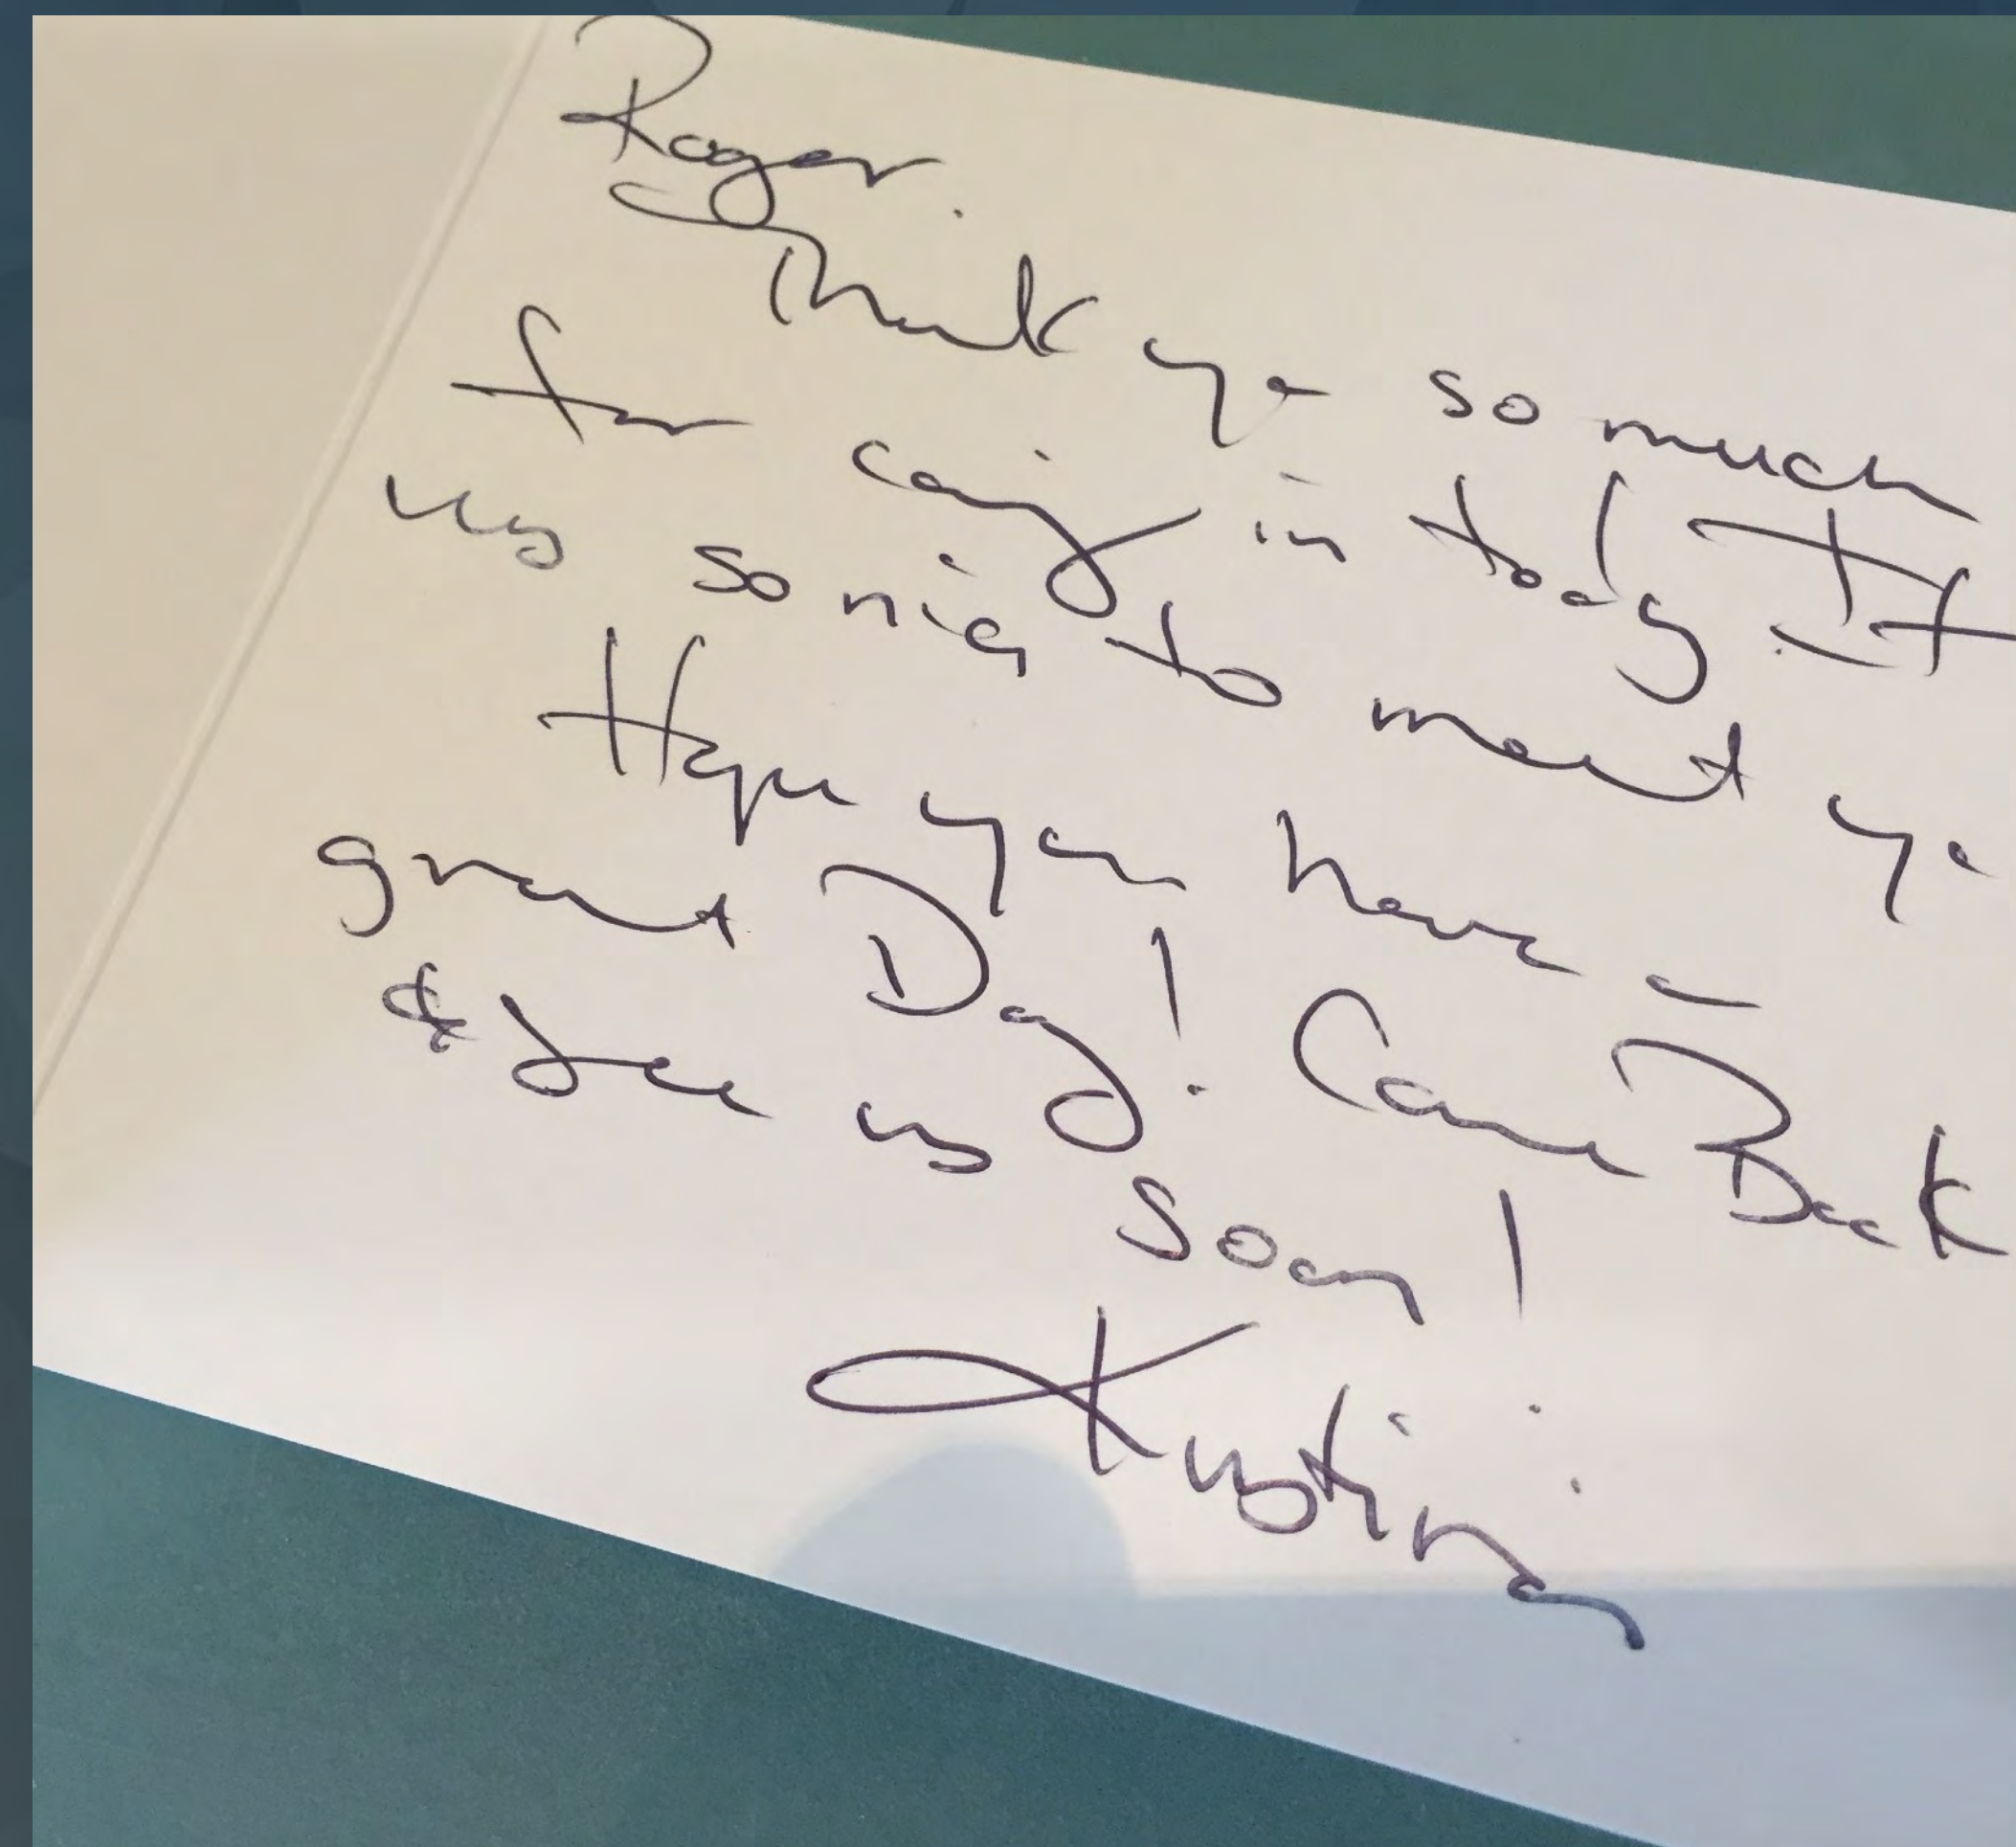 Roger.
Thank you so much
for coming in today It
was so nice to meet yo
Hope you have a
great Day! Come Back
& see us soon!
Kristina